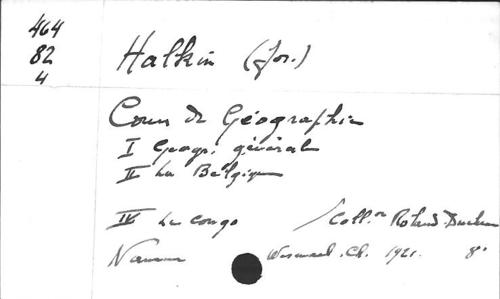 464
82
4
Halkin (Jos.)
Cours de Géographie
I Géogr. générale
II La Belgique
IV Le Congo /Coll.on Roland.
Namur Wesmael.Ch. 1921. 8°